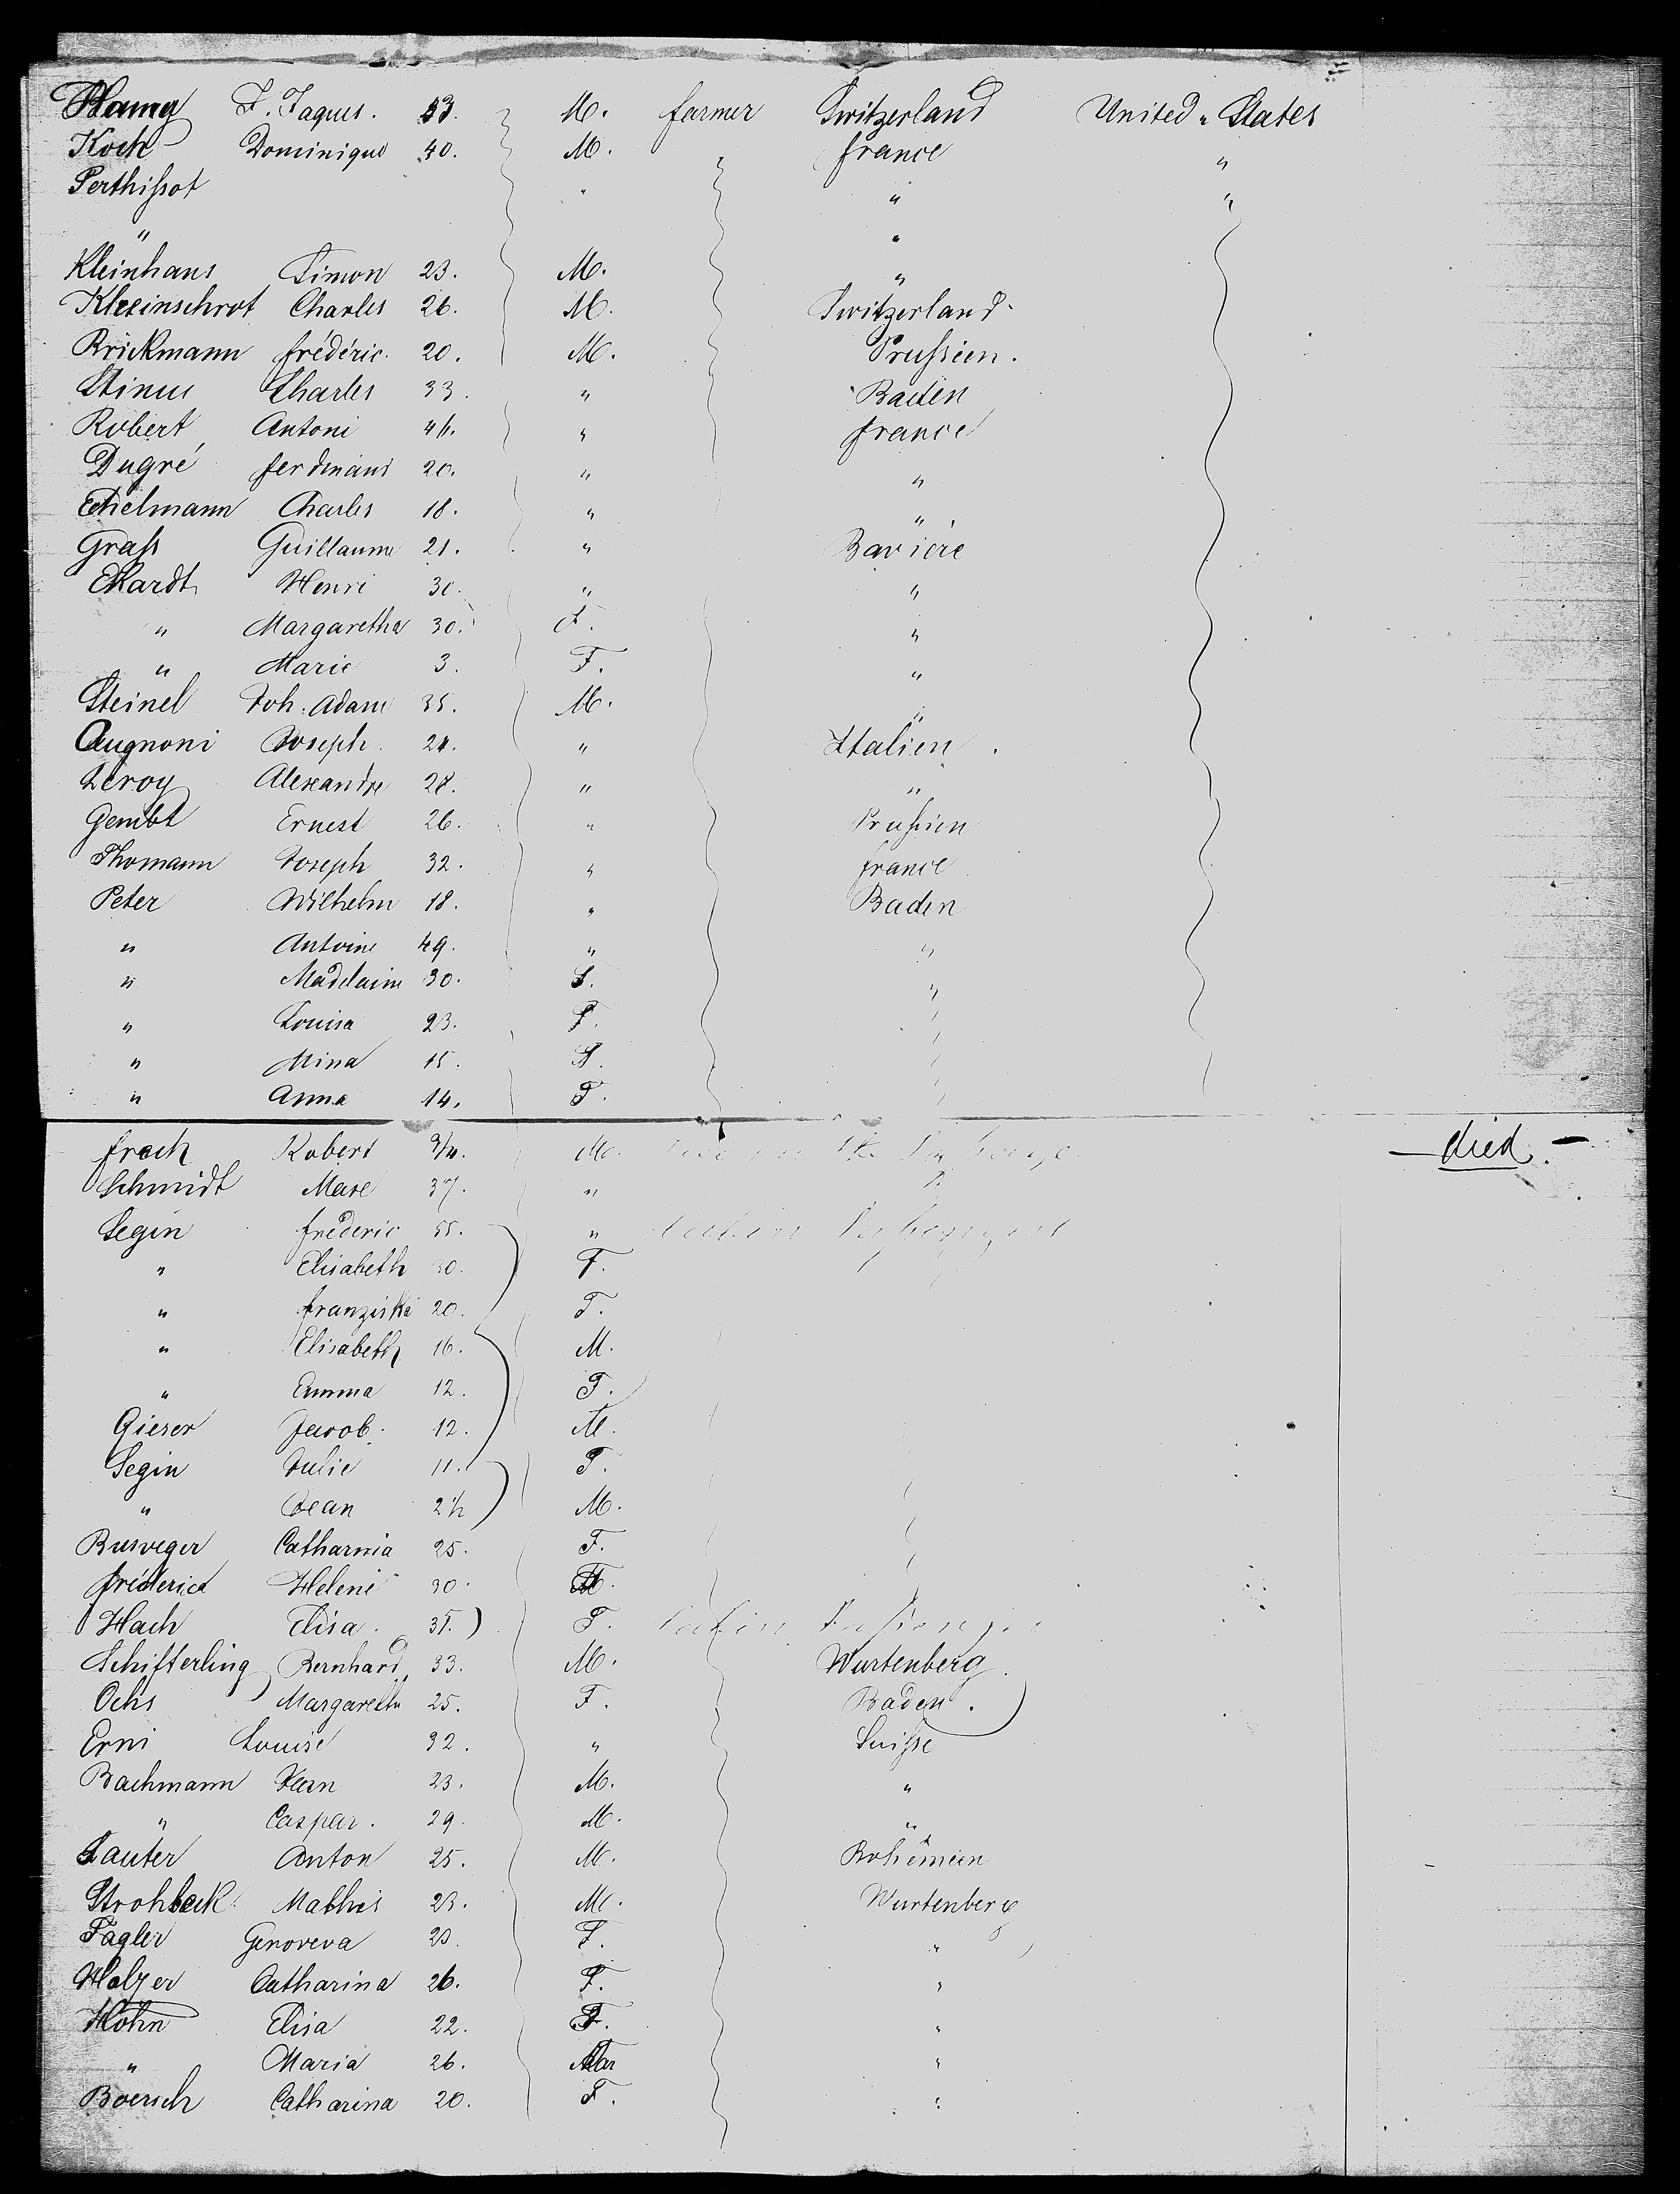 J. Jaques. 53. M. farmer Switzerland United " States
Koch Dominique 40. M. " france "
Perthißot " " "
" "
Kleinhans Simon 23. M. "
Kleeinschrot Charles 26. M. Switzerland
Brickmann frédéric. 20. M. Prußien.
Stinus Charles 33. " Baden
Robert Antoni " france
Dugré ferdinand 20. " "
Charles 18. " "
Graß Guillaume 21. " Bavière
Ekardt Henri 30. " "
" Margaretha 30. F. "
" Marie 3. F. "
Steinel Joh: Adam 35. M. "
Augnoni Joseph. 24. " Italien.
Leroy Alexandre 28. " "
Gembt Ernest 26. " Prußien
Thomann Joseph 32. " france
Peter Wilhelm 18. " Baden
" Antoine 49. " "
" Madelaine 30. F. "
" Louisa 23. F.
" Mina 15. F.
" Anna 14. F.
Robert 3/4. M. — died. —
Schmidt 37. "
Segin frederic 55. "
" Elisabeth F.
" franziska 20. F.
" Elisabeth 16. M.
" Emma 12. F.
Gieser Jacob. 12. M.
Segin Julie 11. F.
" Jean 2 1/2 M.
Catharnia 25. F.
Helene 30.
Hach Elisa. F.
Schifterling Bernhard 33. M. Wurtenberg.
Ochs Margaretha 25. F. Baden.
Erni Louise 32. " Suiße
Bachmann Jean 23. M. "
" Caspar. 29. M. "
Sauter Anton 25. M. Bohémien
Strohbeck Mathis 23. M. Wurtenberg
Fagler Genoveva F. "
Holzer Catharina 26. F. "
Höhn Elisa 22. F. "
" Maria 26. "
Boersch Catharina 20. F. "